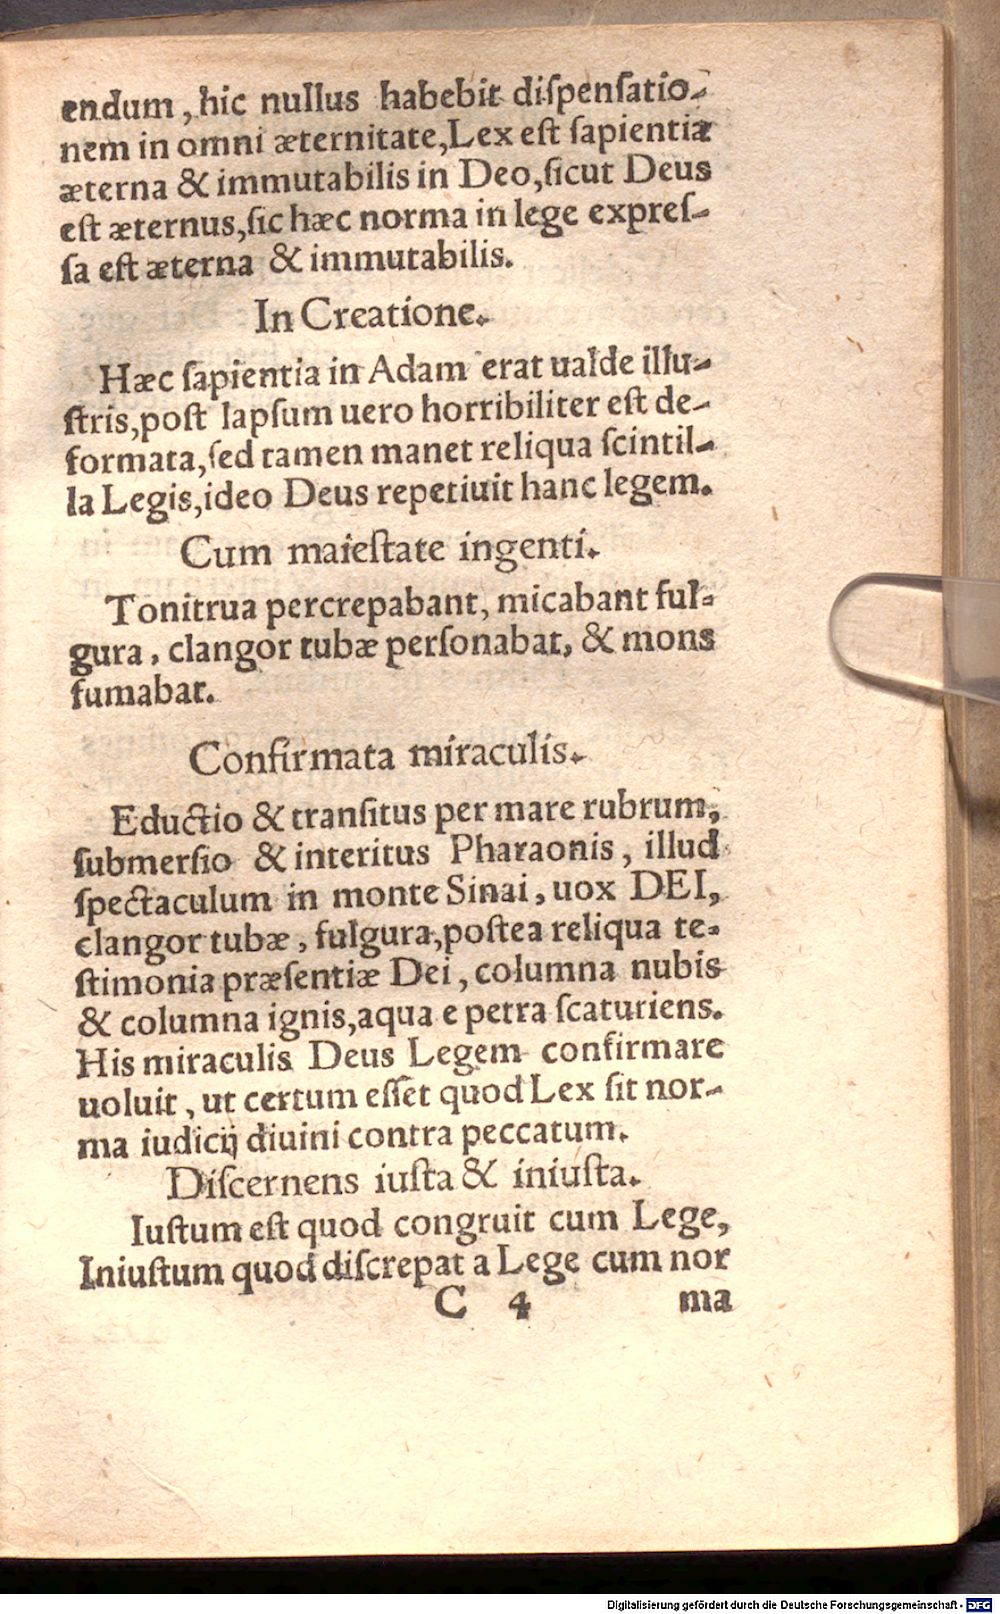 endum, hic nullus habebit diſpenſatio-
nem in omni æternitate, Lex eſt ſapientia
æterna & immutabilis in Deo, ſicut Deus
eſt æternus, ſic hæc norma in lege expreſ-
ſa eſt æterna & immutabilis.
In Creatione.
Hæc ſapientia in Adam erat ualde illu-
ſtris, poſt lapſum uero horribiliter eſt de-
formata, ſed tamen manet reliqua ſcintil-
la Legis, ideo Deus repetiuit hanc legem.
Cum maieſtate ingenti.
Tonitrua percrepabant, micabant ful-
gura, clangor tubæ perſonabat, & mons
fumabat.
Confirmata miraculis.
Eductio & tranſitus per mare rubrum,
ſubmerſio & interitus Pharaonis, illud
ſpectaculum in monte Sinai, uox DEI,
clangor tubæ, fulgura, poſtea reliqua te-
ſtimonia præſentiæ Dei, columna nubis
& columna ignis, aqua e petra ſcaturiens.
His miraculis Deus Legem confirmare
uoluit, ut certum eſſet quod Lex ſit nor-
ma iudicij diuini contra peccatum.
Diſcernens iuſta & iniuſta.
Iuſtum eſt quod congruit cum Lege,
Iniuſtum quod diſcrepat a Lege cum nor
C 4 ma
Digitalisierung gefördert durch die Deutsche Forschungsgemeinschaft - DFG